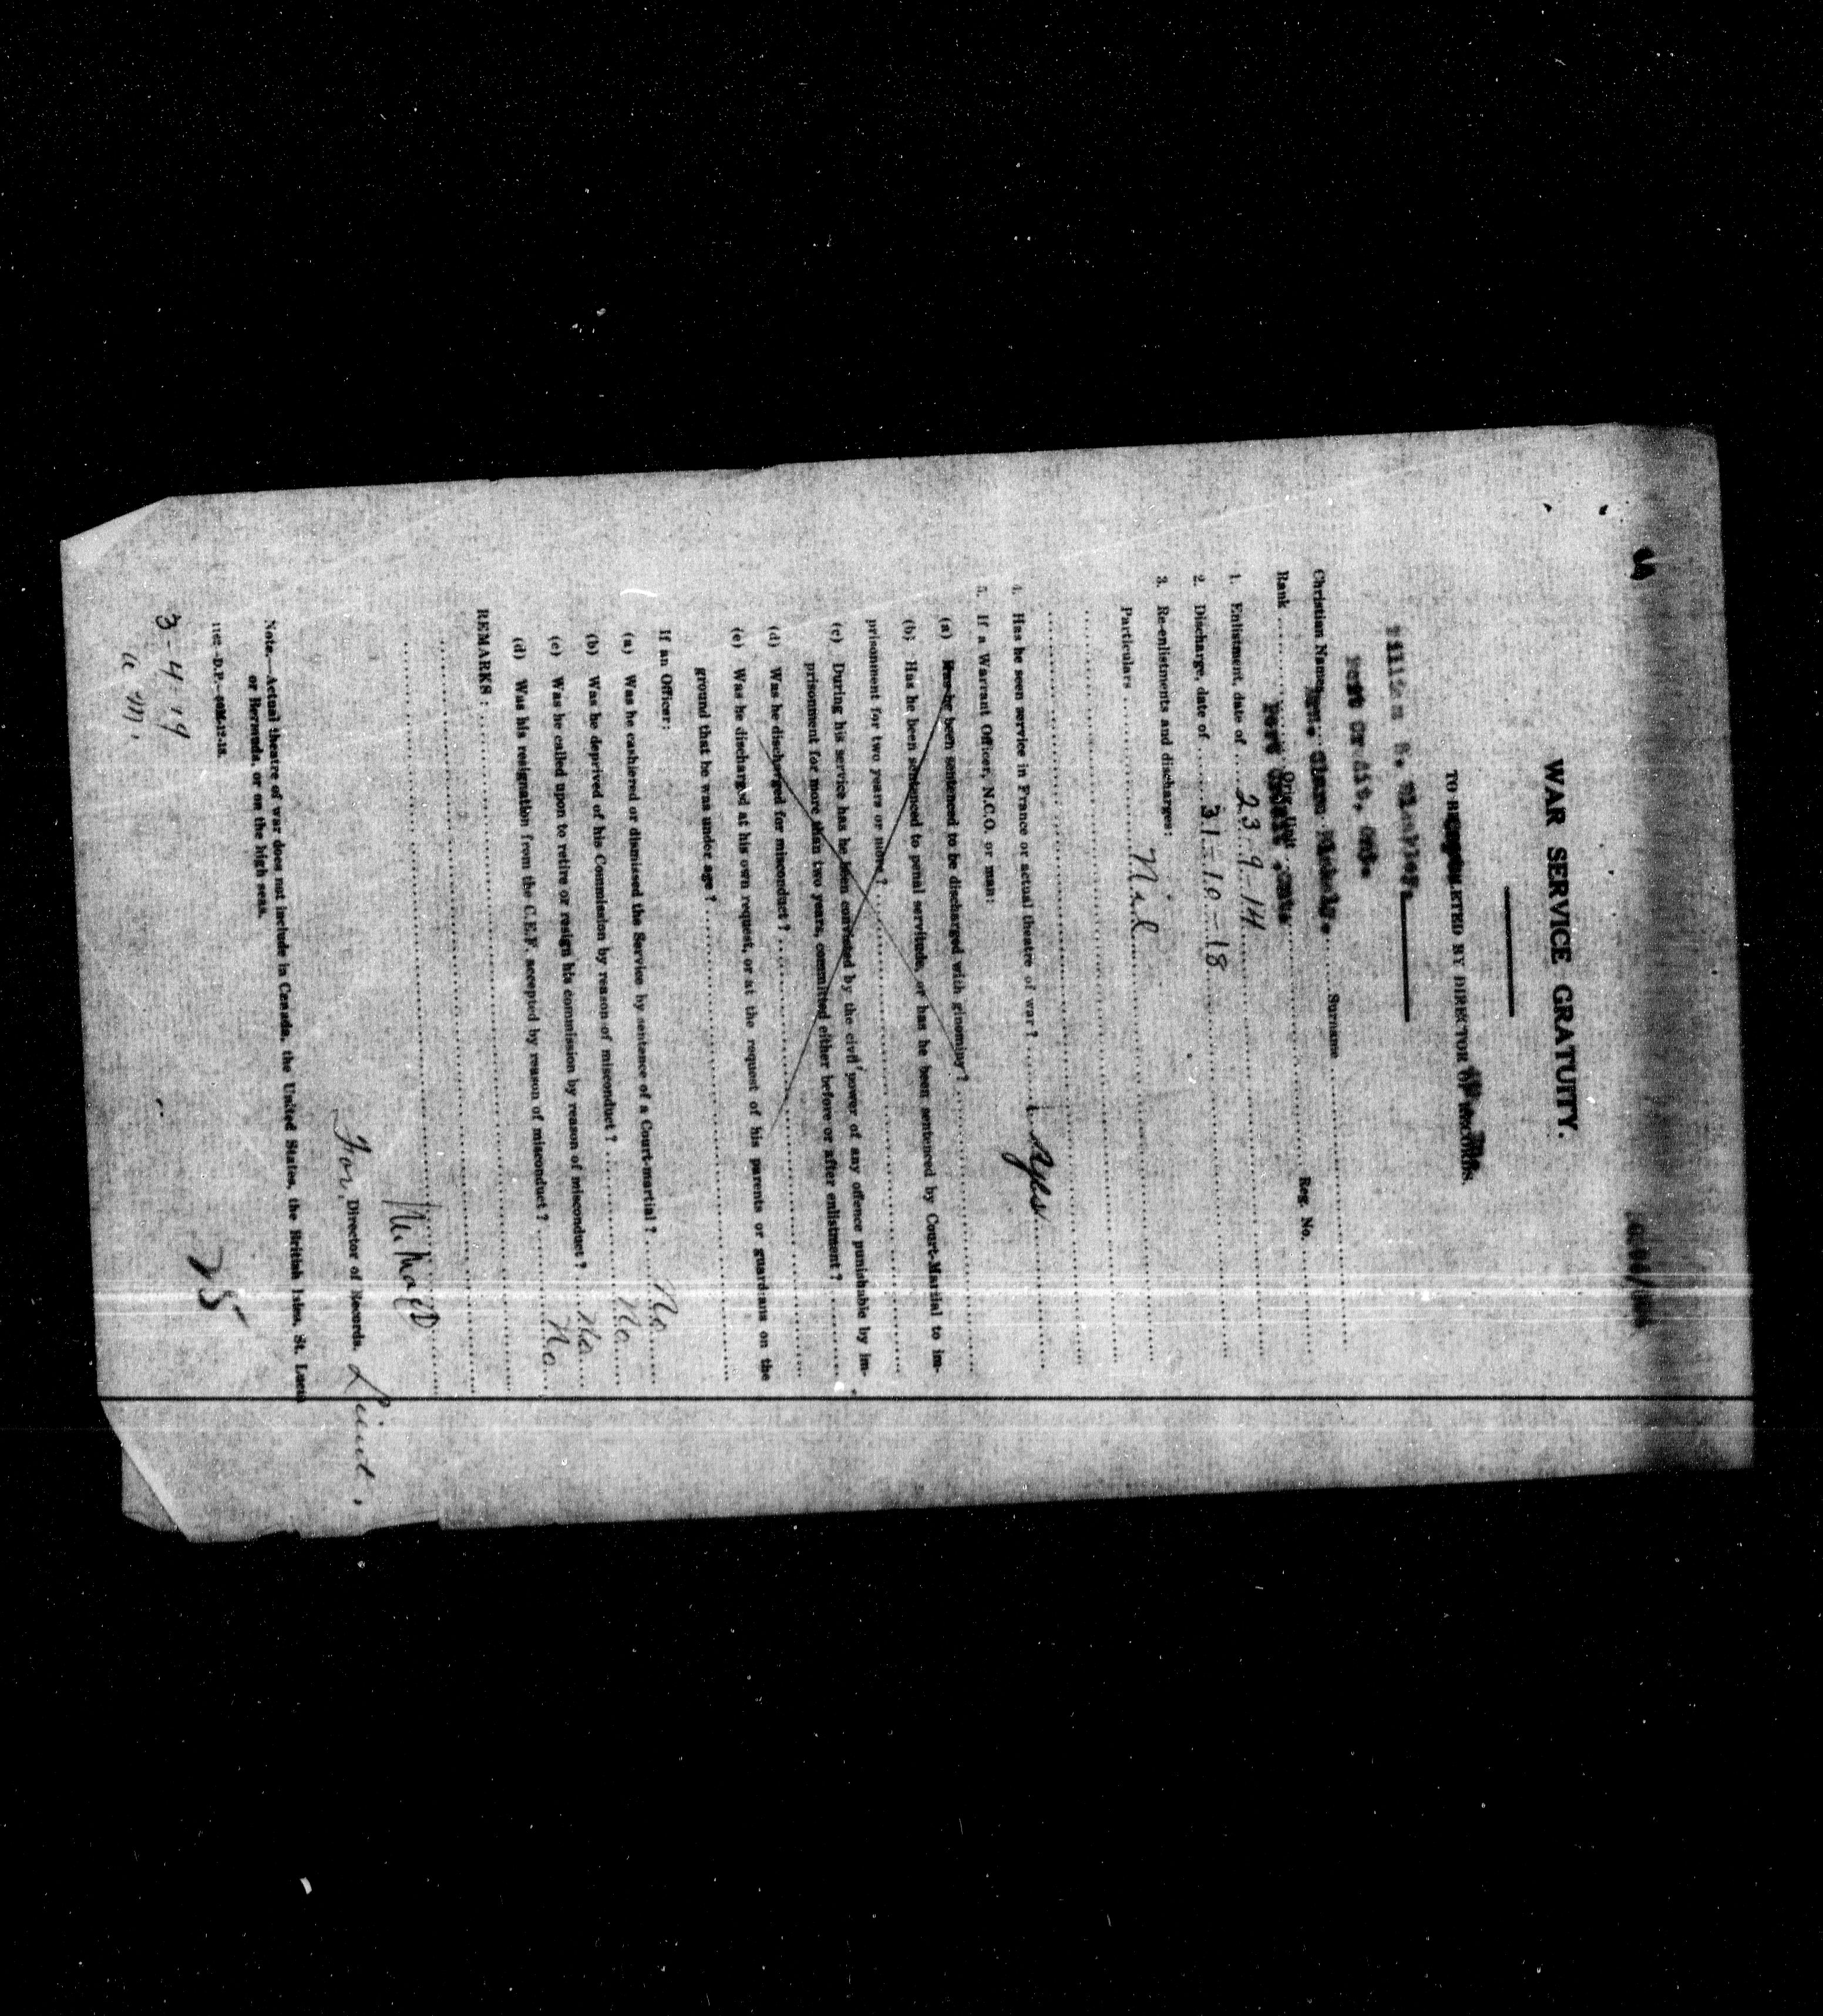 WAR SERVICE GRATUITY.
TO BE COMPLETED BY DIRECTOR OF RECORDS.
Port Credit, Ont.
Christian Names Surname
Rank Orig. Unit Reg. No.
Port Credit, Ont.
1. Enlistment, date of 23-9-14
2. Discharge, date of 31-10-18
3. Re-enlistments and discharges:
Particulars Nil
4. Has he seen service in France or actual theatre of war? yes
5. If a Warrant Officer, N.C.O. or man:
(a) Has he been sentened to be discharged with ginominy?
(b) Has he been sentened to penal servitude, or has he been sentenced by Court-Martial to im-
prisonment for two years or more?
(c) During his service has he been convicted by the civil power of any offence punishable by im-
prisonment for more than two years, committed either before or after enlistment?
(d) Was he discharged for misconduct?
(e) Was he discharged at his own request, or at the request of his parents or guardians on the
ground that he was under age?
If an Officer:
(a) Was he cashiered or dismised the Service by sentence of a Court-martial? No
(b) Was he deprived of his Commission by reason of misconduct? No
(c) Was he called upon to retire or resign his commission by reason of misconduct? No
(d) Was his resignation from the C.E.F. accepted by reason of misconduct? No
REMARKS:
For Director of Records. Lieut.
Note.—Actual theatre of war does not include in Canada, the United States, the British Isles, St. Lucia
or Bermuda, or on the high seas.
25
3-4-19